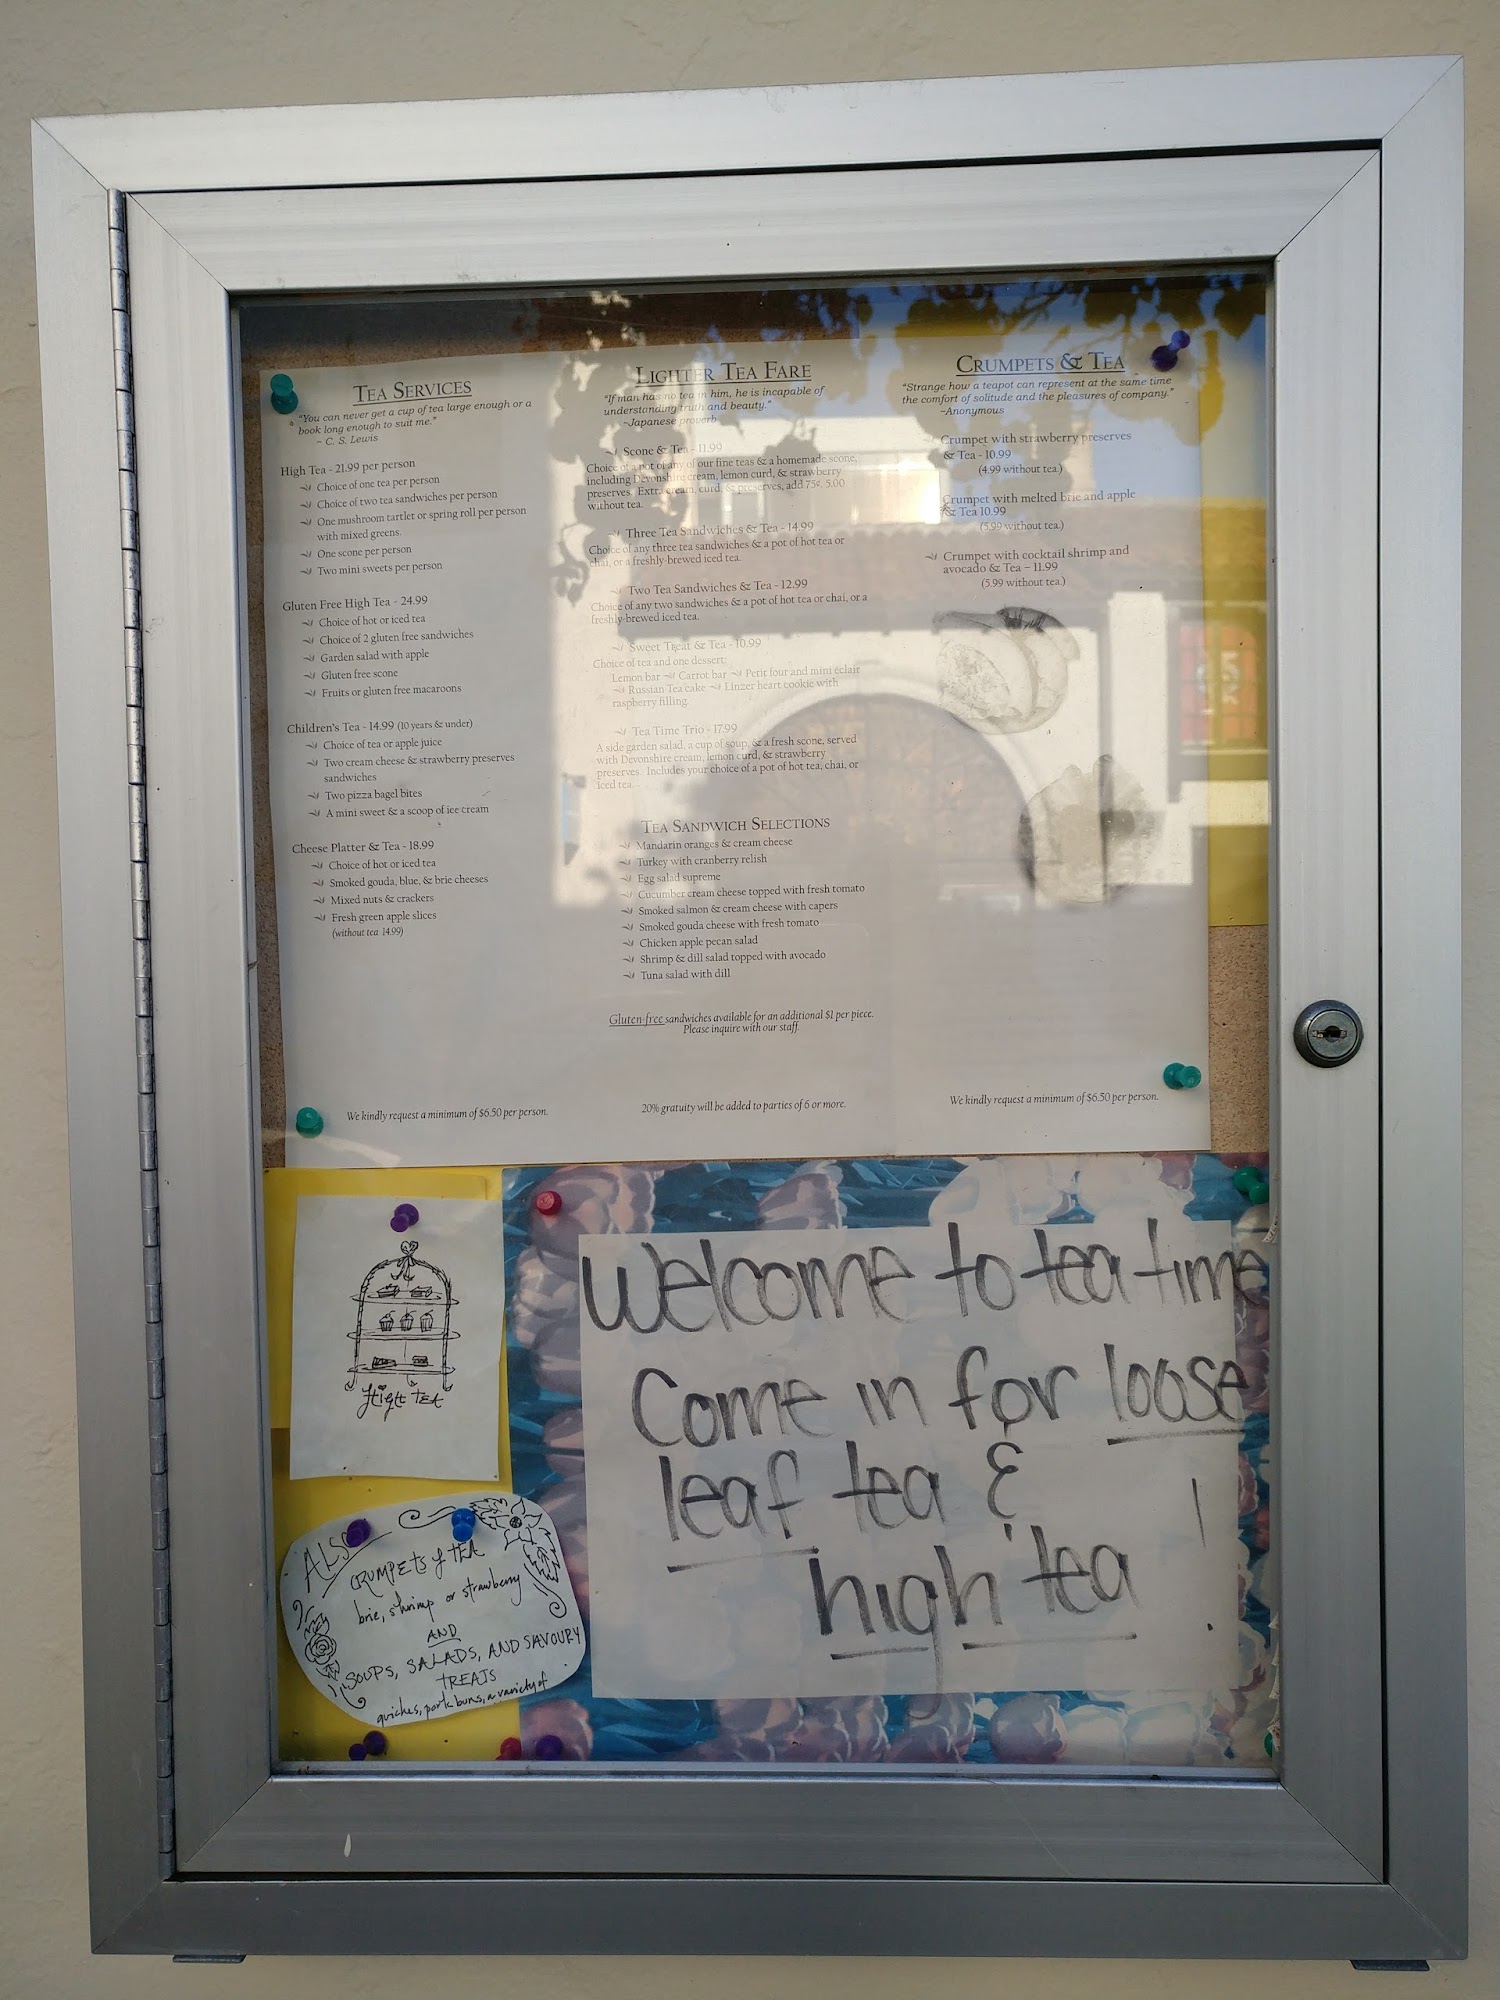 TEA SERVICES
"You can never get a cup of tea large enough or a
book long enough to suit me."
~ C. S. Lewis
High Tea - 21.99 per person
Choice of one tea per person
Choice of two tea sandwiches per person
One mushroom tartlet or spring roll per person
with mixed greens.
One scone per person
Two mini sweets per person
Gluten Free High Tea - 24.99
Choice of hot or iced tea
Choice of 2 gluten free sandwiches
Garden salad with apple
Gluten free scone
Fruits or gluten free macaroons
Children's Tea - 14.99 (10 years & under)
Choice of tea or apple juice
Two cream cheese & strawberry preserves
sandwiches
Two pizza bagel bites
A mini sweet & a scoop of ice cream
Cheese Platter & Tea - 18.99
Choice of hot or iced tea
Smoked gouda, blue, & brie cheeses
Mixed nuts & crackers
Fresh green apple slices
(without tea 14.99)
We kindly request a minimum of $6.50 per person.
LIGHTER TEA FARE
"If man has no tea in him, he is incapable of
understanding truth and beauty."
~Japanese proverb
Scone & Tea - 11.99
Choice of a pot of any of our fine teas & a homemade scone,
including Devonshire cream, lemon curd, & strawberry
preserves. Extra cream, curd, & preserves, add 75¢. 5.00
without tea.
Three Tea Sandwiches & Tea - 14.99
Choice of any three tea sandwiches & a pot of hot tea or
chai, or a freshly-brewed iced tea.
Two Tea Sandwiches & Tea - 12.99
Choice of any two sandwiches & a pot of hot tea or chai, or a
freshly-brewed iced tea.
Sweet Treat & Tea - 10.99
Choice of tea and one dessert:
Lemon bar Carrot bar Petit four and mini éclair
Russian Tea cake Linzer heart cookie with
raspberry filling.
Tea Time Trio - 17.99
A side garden salad, a cup of soup, & a fresh scone, served
with Devonshire cream, lemon curd, & strawberry
preserves. Includes your choice of a pot of hot tea, chai, or
iced tea.
TEA SANDWICH SELECTIONS
Mandarin oranges & cream cheese
Turkey with cranberry relish
Egg salad supreme
Cucumber cream cheese topped with fresh tomato
Smoked salmon & cream cheese with capers
Smoked gouda cheese with fresh tomato
Chicken apple pecan salad
Shrimp & dill salad topped with avocado
Tuna salad with dill
Gluten-free sandwiches available for an additional $1 per piece.
Please inquire with our staff.
20% gratuity will be added to parties of 6 or more.
CRUMPETS & TEA
"Strange how a teapot can represent at the same time
the comfort of solitude and the pleasures of company."
~Anonymous
Crumpet with strawberry preserves
& Tea - 10.99
(4.99 without tea.)
Crumpet with melted brie and apple
& Tea 10.99
(5.99 without tea.)
Crumpet with cocktail shrimp and
avocado & Tea – 11.99
(5.99 without tea.)
We kindly request a minimum of $6.50 per person.
High TEA
ALSO
CRUMPETS & TEA
brie, shrimp or strawberry
AND
SOUPS, SALADS, AND SAVOURY
TREATS
quiches, pork buns, a variety of
Welcome to tea time
Come in for loose
leaf tea &
high tea!